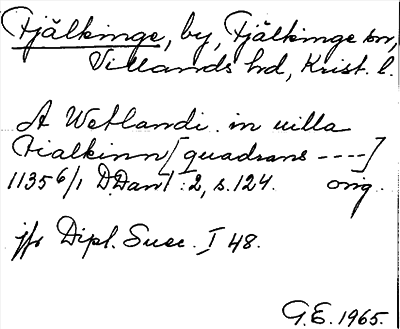 Fjälkinge, by, Fjälkinge sn,
Villands hd, Krist. l.
A Wetlandi in uilla
Fialkinn [quadrans ----]
1135 6/1 DDan I:2, s. 124. orig.
jfr Dipl. Suec. I 48.
G.E. 1965.